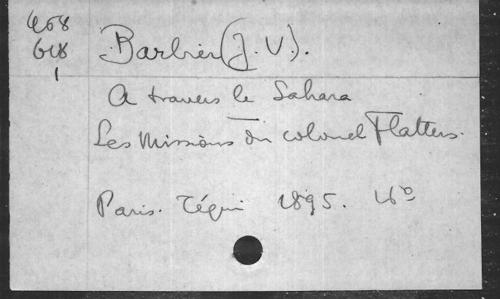 468
618
1
Barbier (J. V.).
A travers le Sahara
Les Missions du colonel Flatters.
Paris. Téqui 1895.